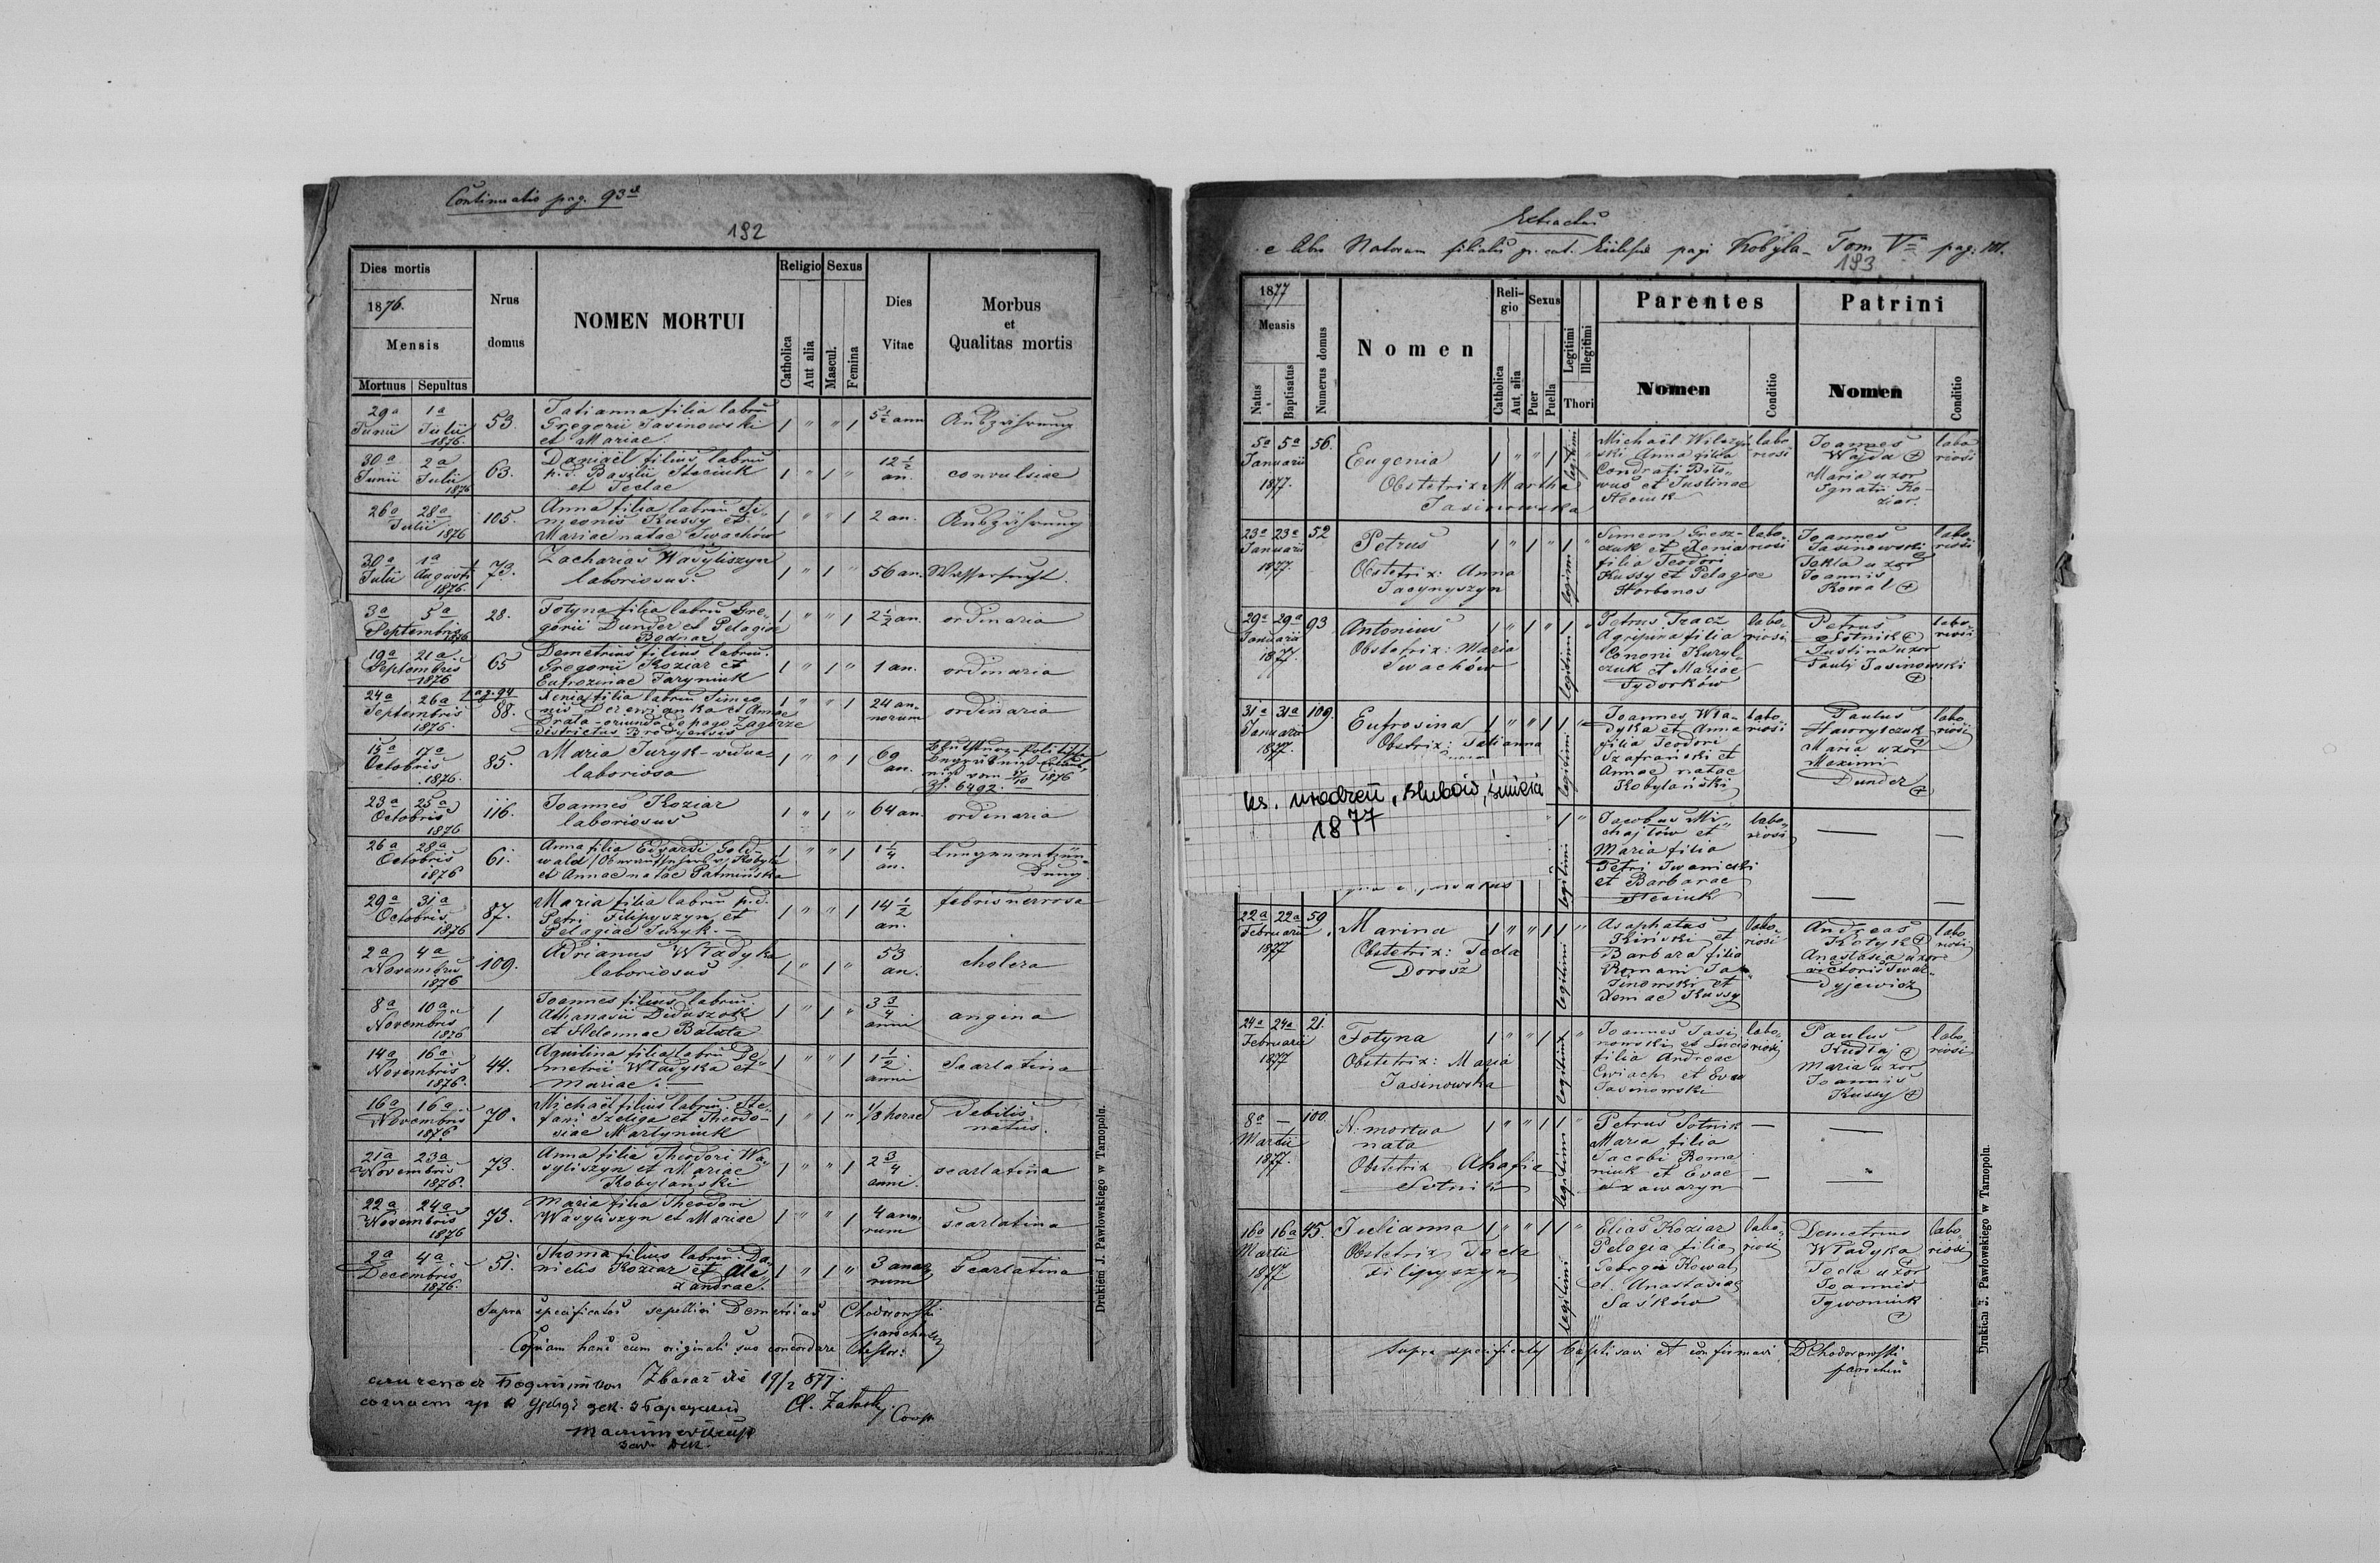 Continuatio pag. 93
192
Dies mortis
1876.
Mensis
Mortuus Sepultus
Nrus domus
NOMEN MORTUI
Religio Sexus
Catholica Aut alia Mascul. Femina
Dies Vitae
Morbus et Qualitas mortis
29a Junii 1a Julii 1876. 53. Tatianna filia labrum
Gregorii Jasinowski
et Mariae. 1 " " 1 5 1/2 ann Auszährung
30a Junii 2a Julii 1876 63. Daniël filius labrum
p.d. Basilii Staciuk
et Teclae 1 " 1 " 12 1/2 an. convulsiae
26a 28a Julii 1876 105. Anna filia labrum Si-
meonis Kussy et
Mariae natae Iwachów 1 " " 1 2 an. Auszährung
30a Julii 1a Augusti 1876. 73. Zacharias Wasyliszyn
laboriosus. 1 " 1 " 56 an. Wassersucht.
3a 5a Septembris 1876 28. Fotyna filia labrum Gre-
gorii Dunder et Pelagiae
Bodnar 1 " " 1 2 1/2 an. ordinaria
19a 21a Septembris 1876 65 Demetrius filius labrum.
Gregorii Koziar et
Eufrozinae Taryniuk 1 " 1 " 1 an. ordinaria
24a 26a Septembris 1876. 88. Xenia filia labrum Simeo-
nis Derewianka et Annae
Drata - oriunda de pago Zagórze
districtus Brodyensis 1 " " 1 24 an-
norum ordinaria
15a 17a Octobris 1876. 85. Maria Juryk - vidua
laboriosa 1 " " 1 60 an.
1876
Zl. 6492.
23a 25a Octobris 1876 116. Joannes Koziar
laboriosus 1 " 1 " 64 an. ordinaria
26a 28a Octobris 1876 61. Anna filia Edvardi Gold-
wald
et Annae natae Patmińska 1 " " 1 1 1/4 an. Lungenentzün-
dung
29a 31a Octobris 1876 87. Maria filia labrum p.d.
Petri Filipyszyn et
Pelagiae Juryk. 1 " " 1 14 1/2 an. febris nervosa
2a 4a Novembris 1876 109. Adrianus Władyka
laboriosus 1 " 1 " 53 an. cholera
8a 10a Novembris 1876 1 Joannes filius labrum.
Athanasii Diduszok
et Helennae Bałuta 1 " 1 " 3 3/4 anni angina
14a 16a Novembris 1876. 44. Aquilina filia labrum De-
metrii Władyka et
Mariae. 1 " " 1 1 1/2 anni Scarlatina
16a 16a Novembris 1876 70. Michaël filius labrum Ste-
fani Szeliga et Theodo-
siae Martyniuk 1 " 1 " 1/8 horae debilis
natus.
21a 23a Novembris 1876. 73. Anna filia Theodori Wa-
syliszyn et Mariae
Kobylański 1 " " 1 2 3/4 anni. scarlatina
22a 24a Novembris 1876 73. Maria filia Theodori
Wasyliszyn et Mariae 1 " " 1 4 anno-
rum scarlatina
2a 4a Decembris 1876. 51. Thoma filius labrum. Da-
nielis Koziar et Ale-
xandrae. 1 " 1 " 3 anno-
rum Scarlatina
Supra specificatos sepelivi Demetrius Chodorowski
parochus
Copiam hanc cum originali suo concordare testor:
Zbaraż die 19/2 877.
Drukiem J. Pawłowskiego w Tarnopolu.
Extractus
e libro Natorum filialis gr. cat. Ecclesiae pagi Kobyla - Tom V pag. 101.
193
1877
Mensis
Natus Baptisatus
Numerus domus
Nomen
Religio Sexus
Catholica Aut alia Puer Puella
Legitimi Illegitimi
Thori
Parentes
Nomen Conditio
Patrini
Nomen Conditio
5a 5a Januarii 1877. 56. Eugenia
Obstetrix Martha
Jasinowska 1 " " 1 legitimi
Michaël Wilczyń-
ski Anna filia
Condrati Biło-
wus et Justinae
Steciuk laboriosi
Joannes
Wajda +
Maria uxor
Ignatii Ko-
ziar. laboriosi
23a 23a Januarii 1877. 52 Petrus
Obstetrix: Anna
Jacynyszyn 1 " 1 " legitimi
Simeon Gresz-
czuk et Xenia
filia Teodori
Kussy et Pelagiae
Horbonos laboriosi
Joannes
Jasinowski
Tekla uxor
Joannis
Kowal + laboriosi
29a 29a Januarii 1877. 93 Antonius
Obstetrix: Maria
Iwachów 1 " 1 " legitimi
Petrus Tkacz
Agripina filia
Cononi Kuryl-
czuk et Mariae
Fydorków laboriosi
Petrus
Sotnik +
Justina uxor
Pauli Jasinowski
+ laboriosi
31a 31a Januarii 1877. 109. Eufrosina
Obstetrix: Tatianna 1 " " 1 legitimi
Joannes Wła-
dyka et Anna
filia Teodori
Szafrański et
Annae natae
Kobylański laboriosi
Paulus
Hawrylczuk
Maria uxor
Maximi
Dunder + laboriosi
ks. urodzeń, ślubów, śmierci
1877
legitimi
Jacobus Mi-
chajłów et
Maria filia
Petri Iwanicki
et Barbarae
Steciuk laboriosi
22a 22a Februarii 1877 59. Marina
Obstetrix: Tecla
Dorosz 1 " " 1 legitimi
Asaphatus
Kiński et
Barbara filia
Romani Ja-
sinowski et
Xeniae Kussy laboriosi
Andreas
Kotyk +
Anastasia uxor
Victoris Twar-
dyjewicz laboriosi
24a 24a Februarii 1877 21. Fotyna
Obstetrix: Maria
Jasinowska 1 " " 1 legitimi
Joannes Jasi-
nowski et Lucia
filia Andreae
Cwiach et Evae
Jasinowski laboriosi
Paulus
Kudła +
Maria uxor
Joannis
Kussy + laboriosi
8a — Martii 1877. 100. N. mortua
nata
Obstetrix Ahafia
Sotnik 1 " " 1 legitimi
Petrus Sotnik
Maria filia
Jacobi Roma
niuk et Evae
Szawaryn
16a 16a Martii 1877 45. Julianna
Obstetrix Tecla
Filipyszyn 1 " " 1 legitimi
Elias Koziar
Pelagia filia
Georgii Kowal
et Anastasiae
Saśków laboriosi
Demetrius
Władyka +
Tecla uxor
Joannis
Tywoniuk
+ laboriosi
Supra specificatos baptisavi et confirmavi DChodorowski
parochus
Drukiem J. Pawłowskiego w Tarnopolu.